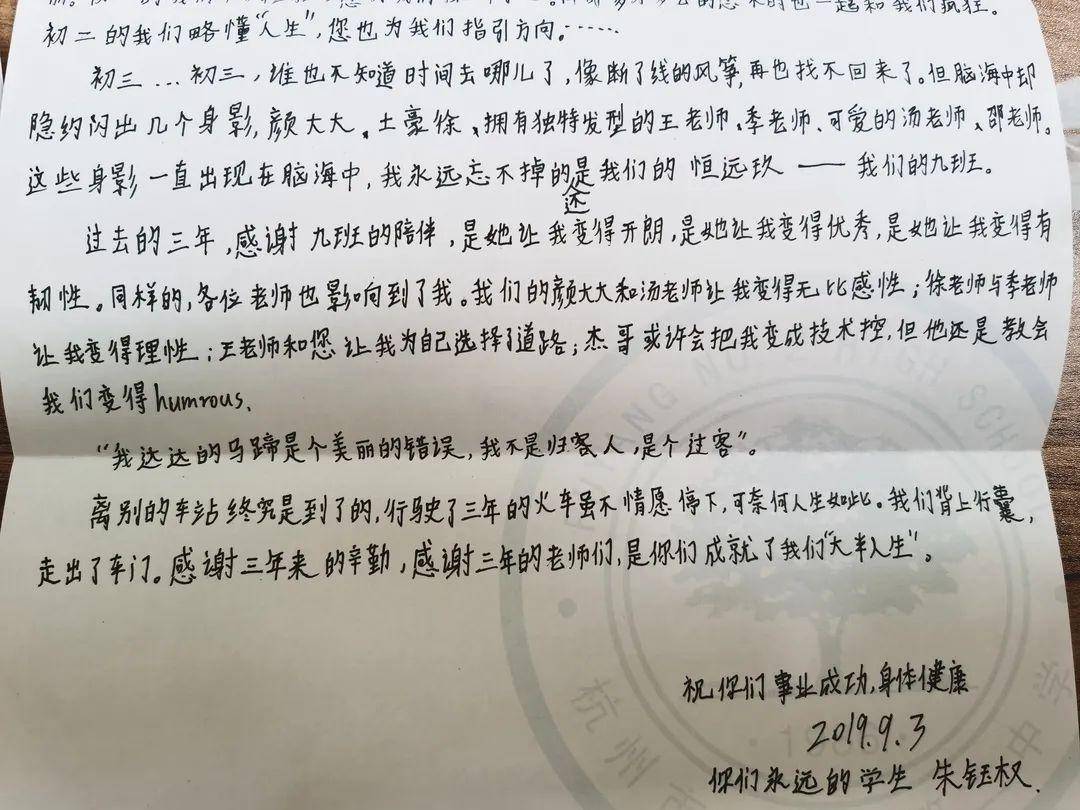 初二的我们略懂“人生”,您也为我们指引方向。……
初三…初三,谁也不知道时间去哪儿了,像断了线的风筝,再也找不回来了。但脑海中却
隐约闪出几个身影,颜大大、土豪徐、拥有独特发型的王老师、季老师、可爱的汤老师、邵老师。
这些身影一直出现在脑海中,我永远忘不掉的还是我们的恒远玖——我们的九班。
过去的三年,感谢九班的陪伴,是她让我变得开朗,是她让我变得优秀,是她让我变得有
韧性。同样的,各位老师也影响到了我。我们的颜大大和汤老师让我变得无比感性;徐老师与季老师
让我变得理性;王老师和您让我为自己选择了道路;杰哥或许会把我变成技术控,但他还是教会
我们变得humrous.
“我达达的马蹄是个美丽的错误,我不是归客人,是个过客”。
离别的车站终究是到了的,行驶了三年的火车虽不情愿停下,可奈何人生如此。我们背上行囊,
走出了车门。感谢三年来的辛勤,感谢三年的老师们,是你们成就了我们“大半人生”。
祝你们事业成功,身体健康
2019.9.3
你们永远的学生 朱钰权.
杭州
中